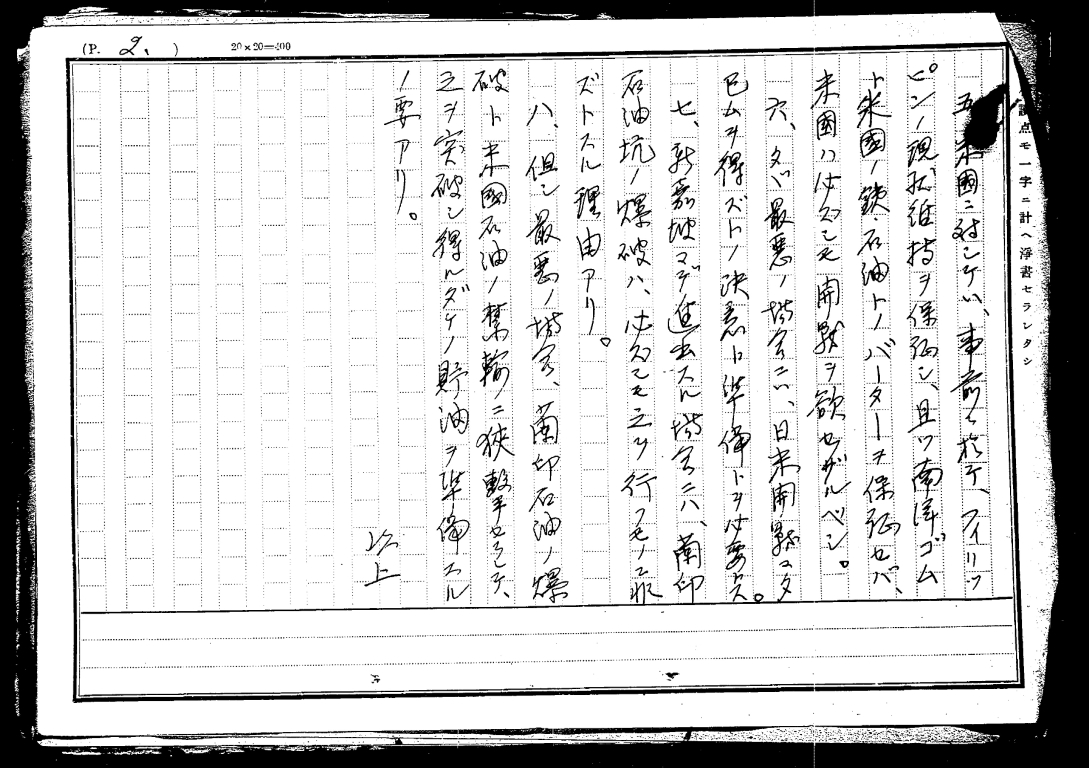 (P. 2. )
20×20=400
點モ一字ニ計ヘ淨書セラレタシ
五、米國ニ対シテハ、事前ニ於テ、フィリッ
ピンノ現状維持ヲ保証シ、且ツ南洋ゴム
ト米國ノ鉄・石油トノバーターヲ保証セバ、
米國ハ必ズシモ開戰ヲ欲セザルベシ。
六、タヾ最悪ノ場合ニハ、日米開戰マタ
已ムヲ得ズトノ決意ト準備トヲ必要トス。
七、新嘉坡マデ進出スル場合ニハ、蘭印
石油坑ノ爆破ハ、必ズシモ之ヲ行フモノニ非
ズトスル理由アリ。
八、但シ最悪ノ場合、蘭印石油ノ爆
破ト米國石油ノ禁輸ニ狹撃セラレテ、
之ヲ突破シ得ルダケノ貯油ヲ準備スル
ノ要アリ。
以上